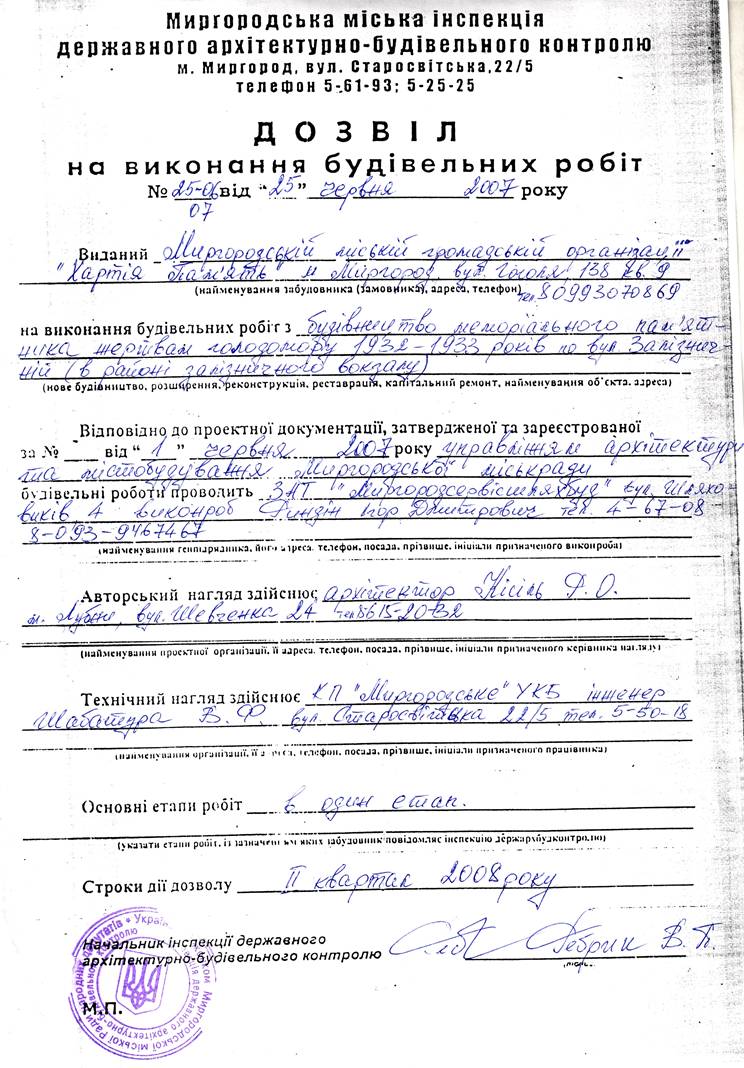 Миргородська міська інспекція
державного архітектурно-будівельного контролю
м. Миргород, вул. Старосвітська,22/5
телефон 5-61-93; 5-25-25
ДОЗВІЛ
на виконання будівельних робіт
№ 25-06 від “25” червня 2007 року
07
Виданий Миргородській міській громадській організації
"Хартія Пам'ять" м Миргород, вул. Гоголя 138 кв. 9
(найменування забудовника (замовника), адреса, телефон) тел. 80993070869
на виконання будівельних робіт з будівництво меморіального пам'ят-
ника жертвам голодомору 1932-1933 років по вул. Залізнич-
ній (в районі залізничного вокзалу)
(нове будівництво, розширення, реконструкція, реставрація, капітальний ремонт, найменування об'єкта, адреса)
Відповідно до проектної документації, затвердженої та зареєстрованої
за № від “1” червня 2007 року управлінням архітектури
та містобудування Миргородської міськради
будівельні роботи проводить ЗАТ "Миргородсервісшляхбуд" вул. Шляхо-
виків 4 виконроб Ігор Дмитрович тел. 4-67-08
8-093-9467467
(найменування генпідрядника, його адреса, телефон, посада, прізвище, ініціали призначеного виконроба)
Авторський нагляд здійснює архітектор Кісіль Р.О.
м. Лубни, вул. Шевченка 24 тел 8615-20-32
(найменування проектної організації, її адреса, телефон, посада, прізвище, ініціали призначеного керівника нагляду)
Технічний нагляд здійснює КП "Миргородське" УКБ інженер
Шабатура В.Ф. вул. Старосвітська 22/5 тел. 5-50-18
(найменування організації, її адреса, телефон, посада, прізвище, ініціали призначеного працівника)
Основні етапи робіт в один етап.
(указати етапи робіт, із зазначенням яких забудовник повідомляє інспекцію держархбудконтролю)
Строки дії дозволу II квартал 2008 року
Начальник інспекції державного
архітектурно-будівельного контролю Дебрин В.П.
М.П.